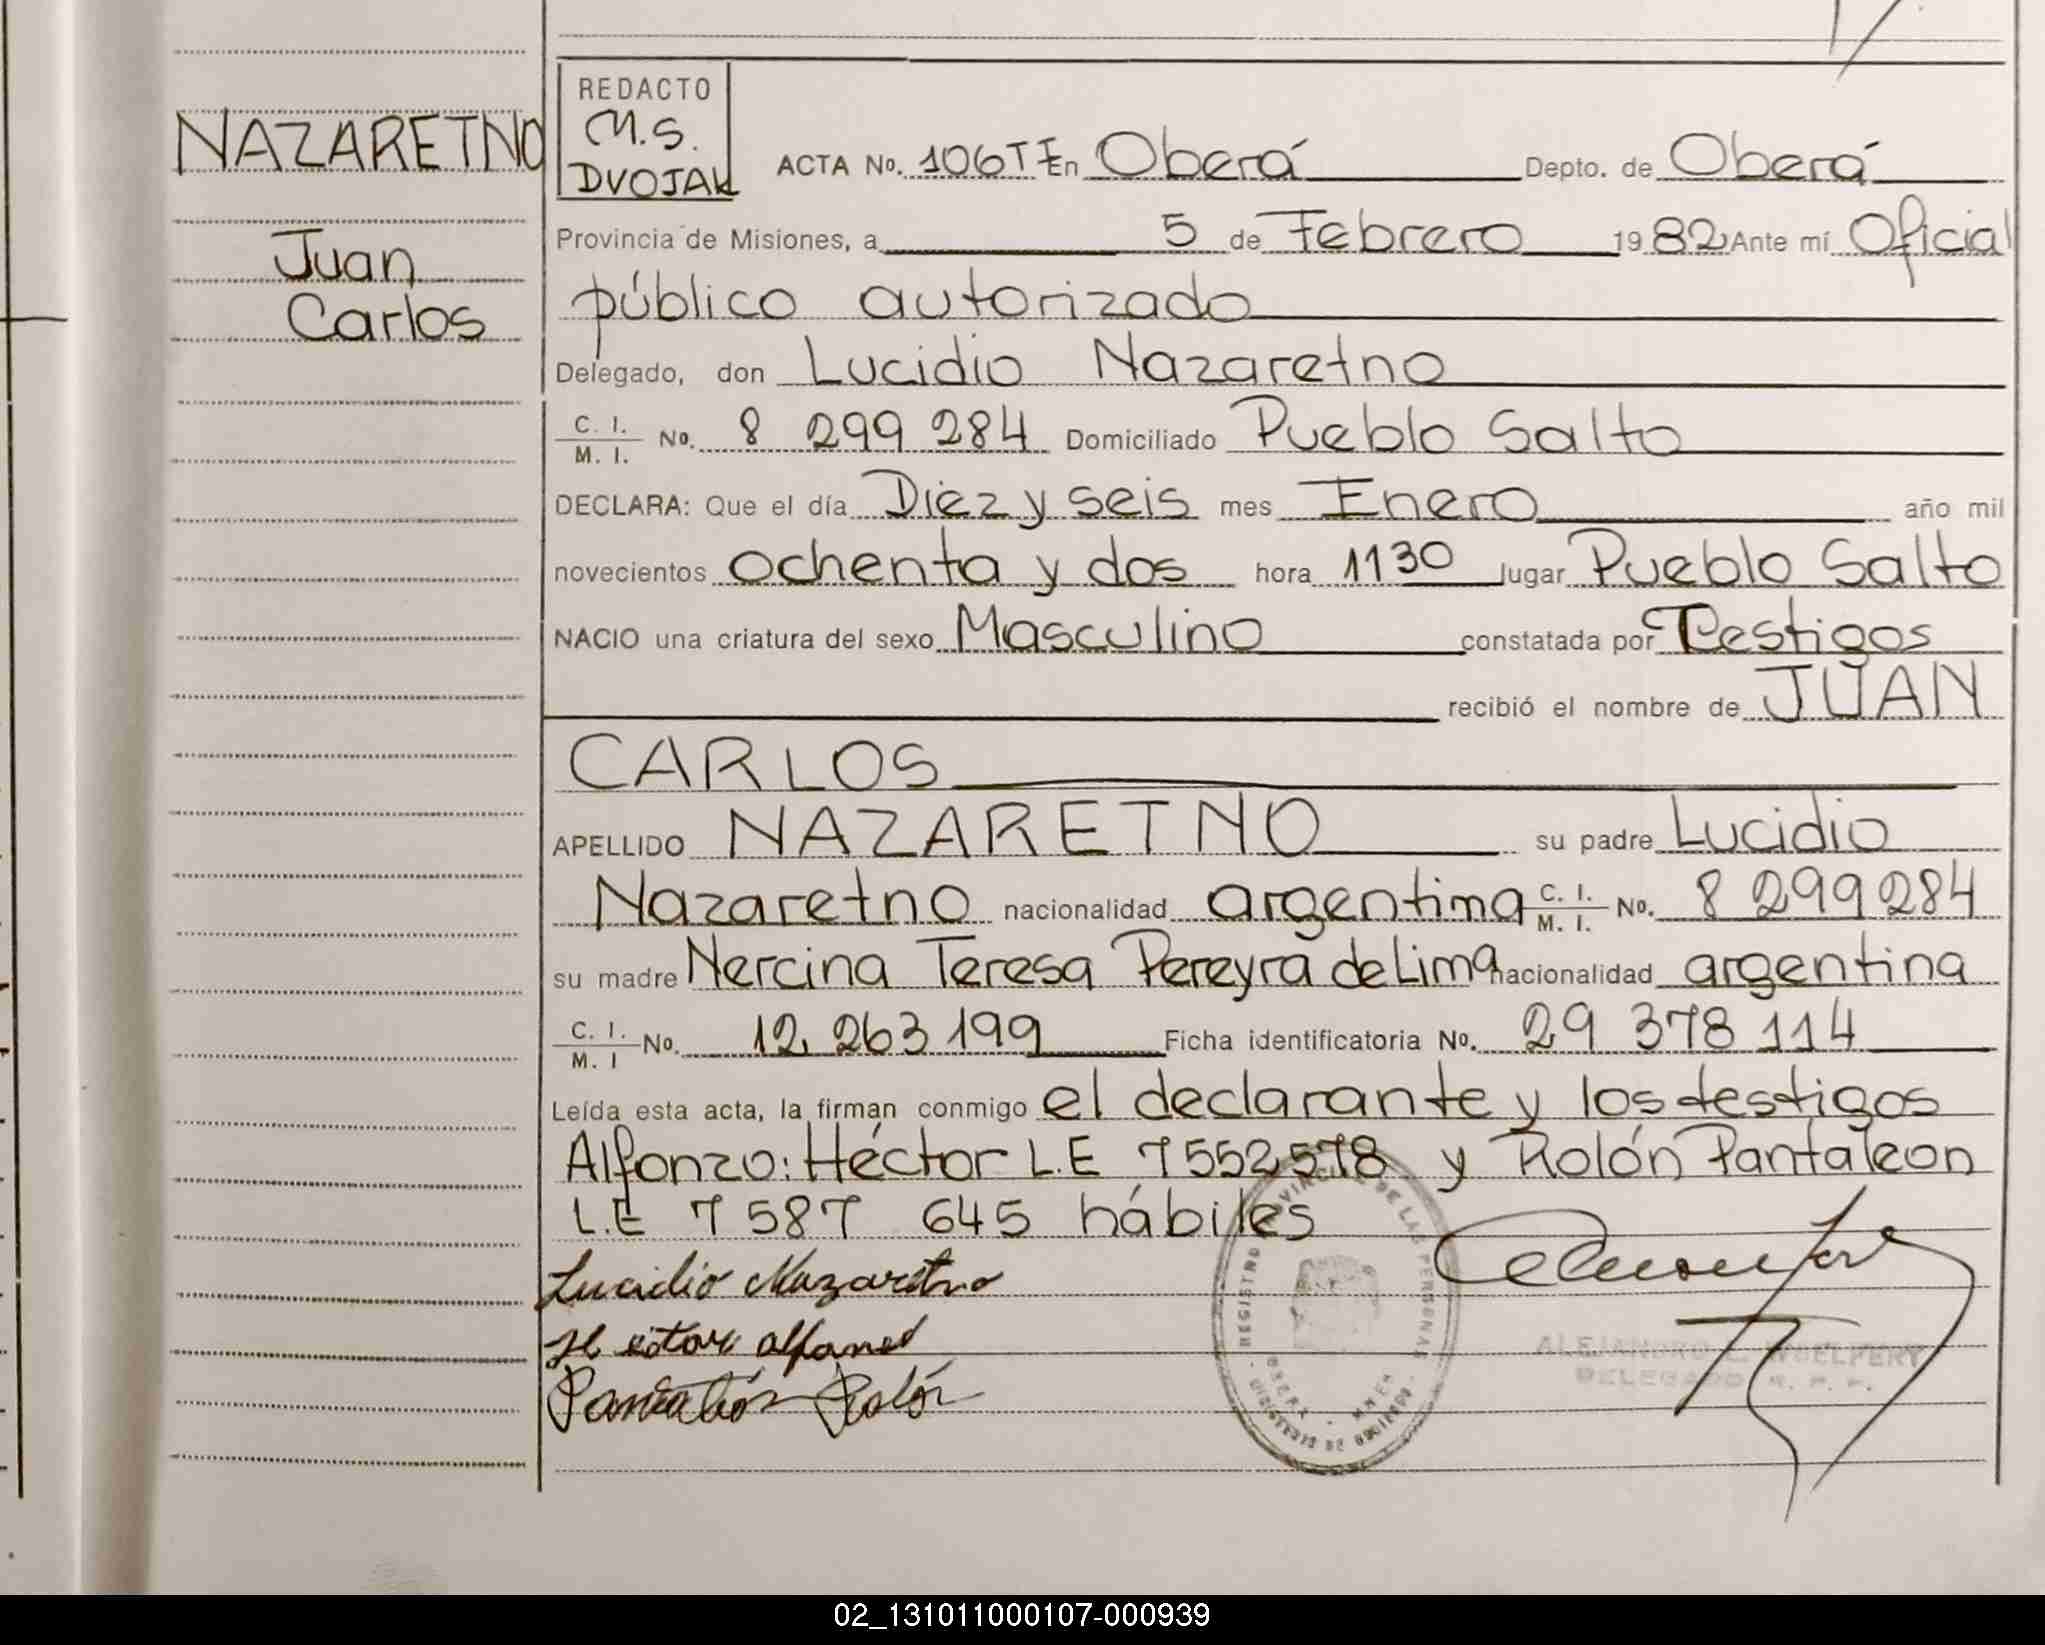 NAZARETNO
Juan
Carlos
REDACTO
M.S.
DVOJAK
ACTA No. 106TI En Oberá Depto. de Oberá
Provincia de Misiones, a 5 de Febrero 1982 Ante mí Oficial
público autorizado
Delegado, don Lucidio Nazaretno
C. I. / M. I. No. 8 299 284 Domiciliado Pueblo Salto
DECLARA: Que el día Diez y seis mes Enero año mil
novecientos ochenta y dos hora 1130 lugar Pueblo Salto
NACIO una criatura del sexo Masculino constatada por Testigos
recibió el nombre de JUAN
CARLOS
APELLIDO NAZARETNO su padre Lucidio
Nazaretno nacionalidad argentina C. I. / M. I. No. 8 299 284
su madre Nercina Teresa Pereyra de Lima nacionalidad argentina
C. I. / M. I No. 12 263 199 Ficha identificatoria No. 29 378 114
Leída esta acta, la firman conmigo el declarante y los testigos
Alfonzo: Héctor L.E 7552578 y Rolón Pantaleon
L.E 7 587 645 hábiles
Lucidio Nazaretno
Pantaleón Rolón
REGISTRO PROVINCIAL DE LAS PERSONAS
ALEJANDRO
DELEGADO R. P. P.
02_131011000107-000939